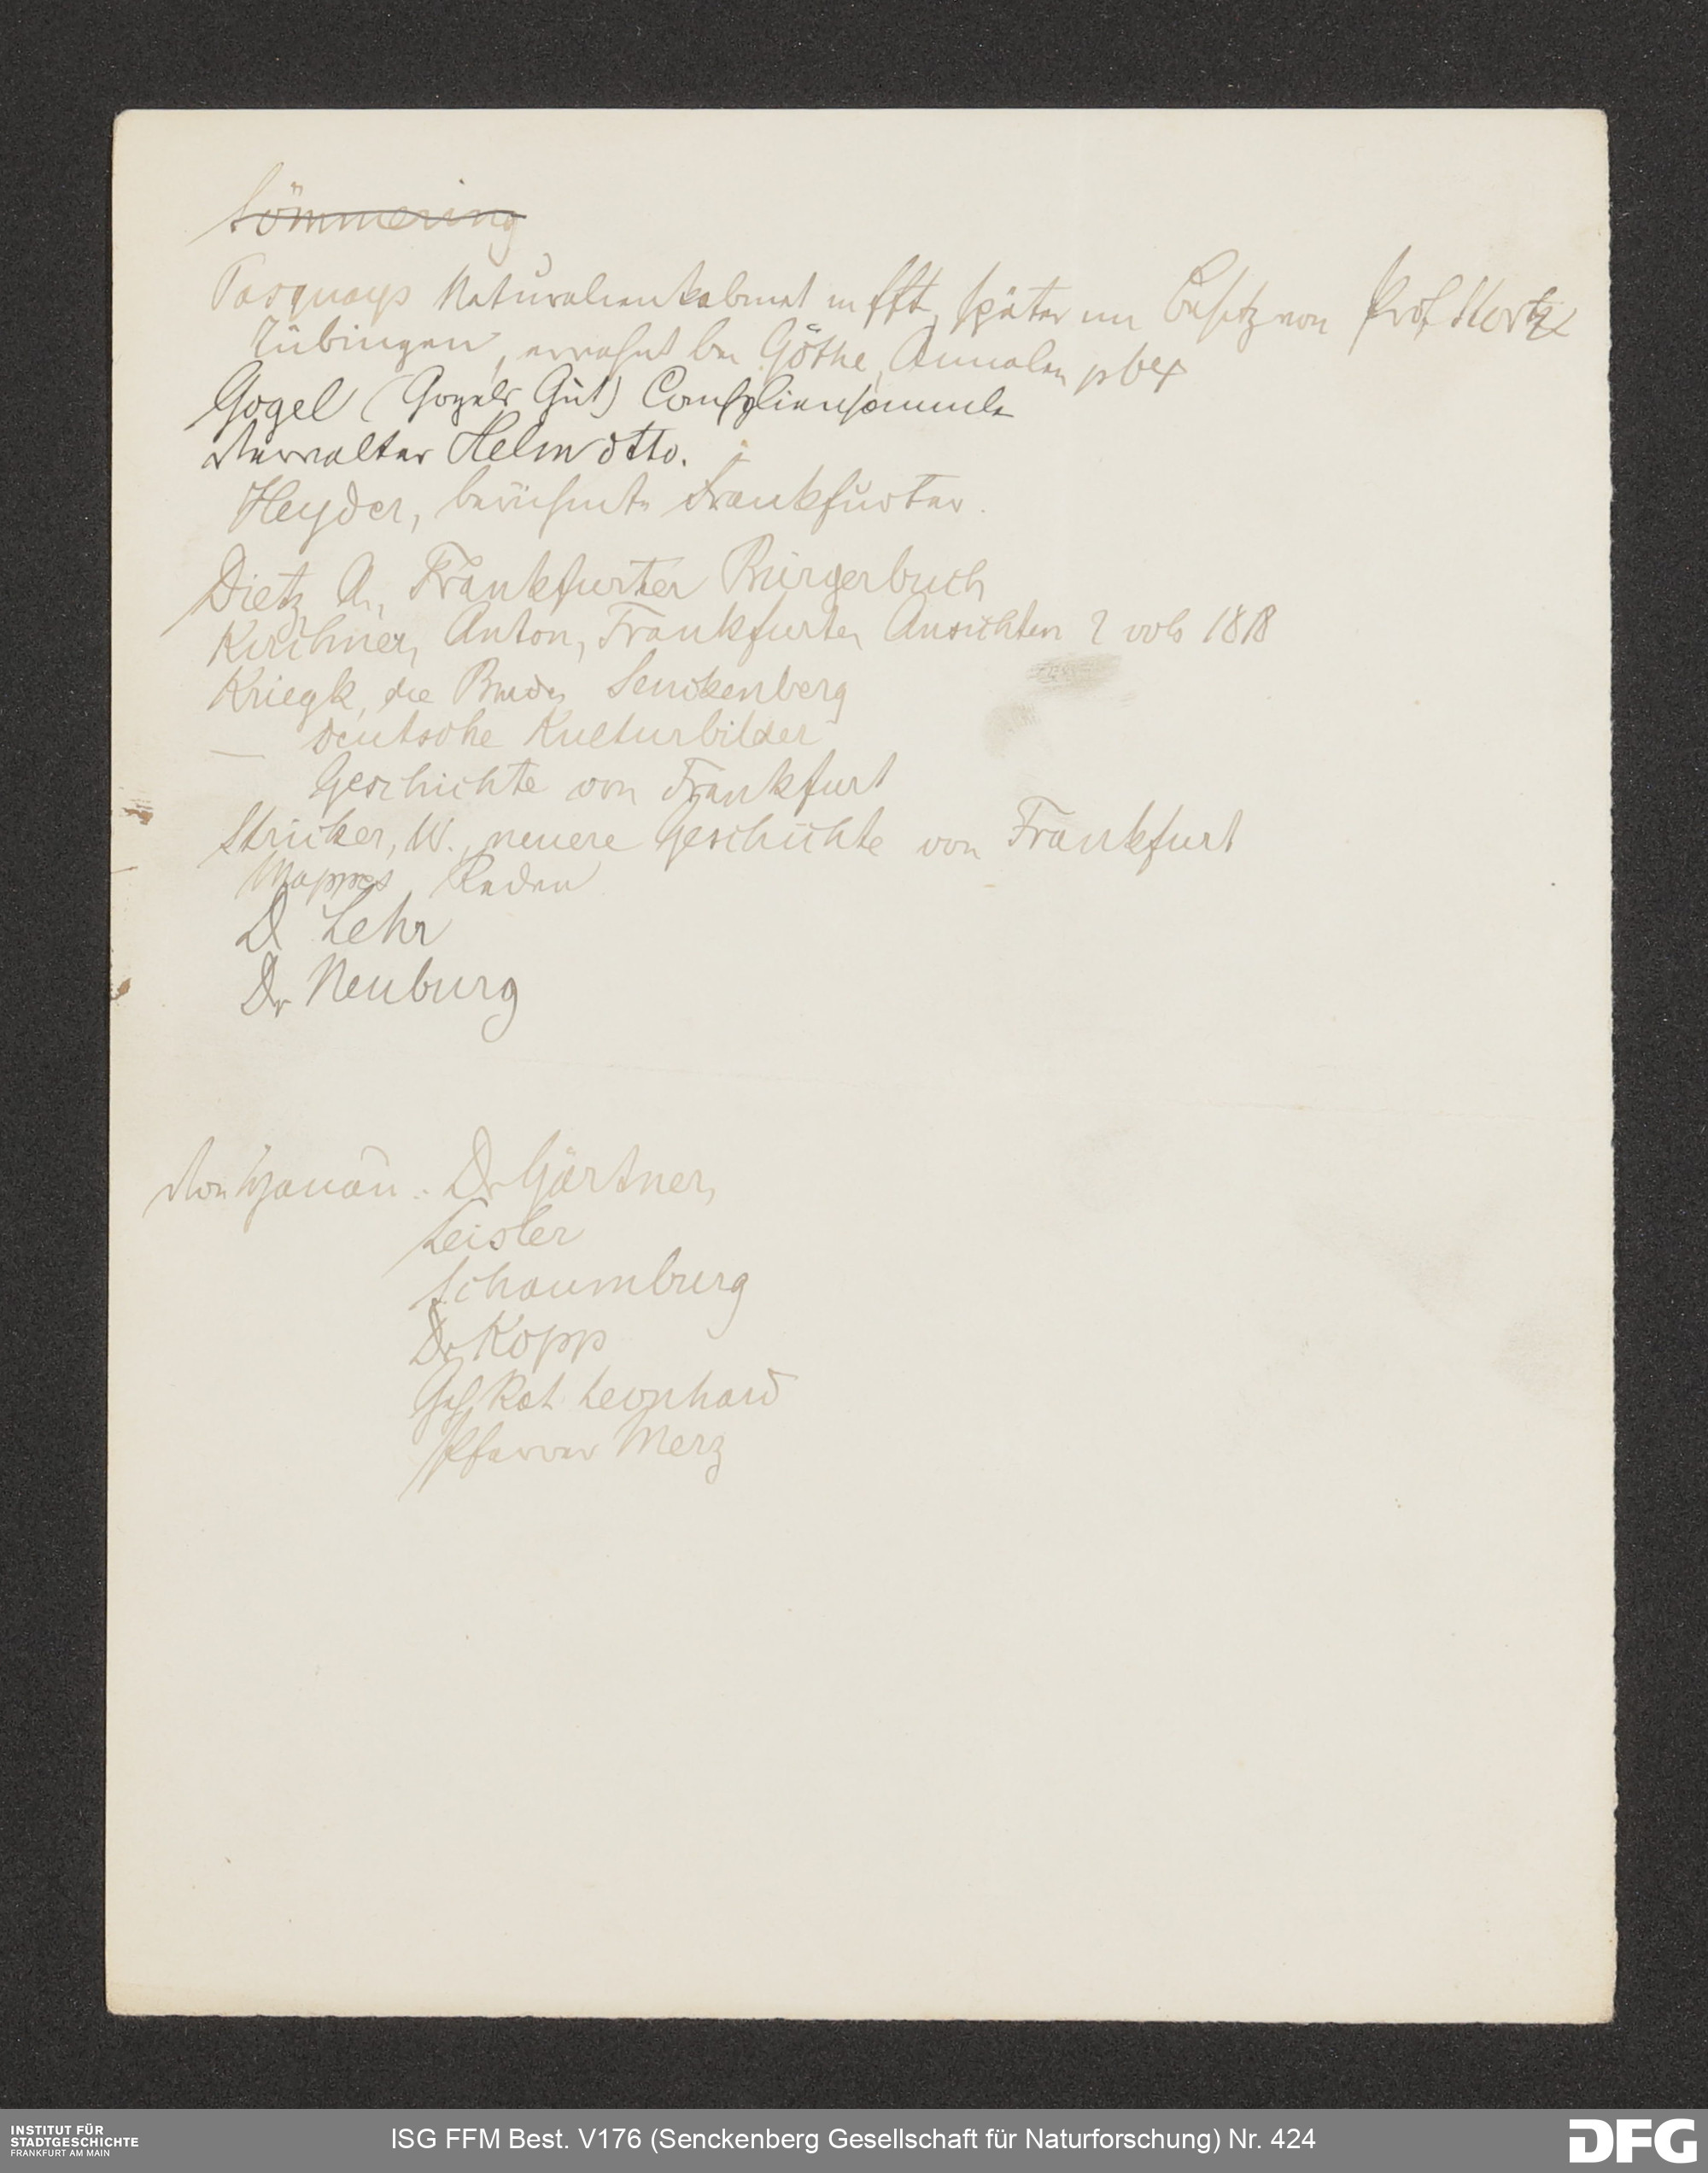 Sömmering
Pasquays Naturalienkabinet in Fft, später im Besitz von Prof Storrz
Tübingen, erwähnt bei Göthe, Annalen p
Gogel (Gogels Gut) Consilien
Verwalter Helm Otto.
Heyder, berühmte Frankfurter.
Dietz, A., Frankfurter Bürgerbuch
Kirchner, Anton, Frankfurter Ansichten 2 vols 1818
Kriegk, die Brüder Senckenberg
— Deutsche Kulturbilder
Geschichte von Frankfurt
Stricker, W., neuere Geschichte von Frankfurt
Mappes Reden
D Lehr
Dr Neuburg
Von Hanau: Dr Gärtner,
Leisler
Schaumburg
Dr Kopp
Geh Rat Leonhard
Pfarrer Merz
INSTITUT FÜR
STADTGESCHICHTE
FRANKFURT AM MAIN
ISG FFM Best. V176 (Senckenberg Gesellschaft für Naturforschung) Nr. 424
DFG